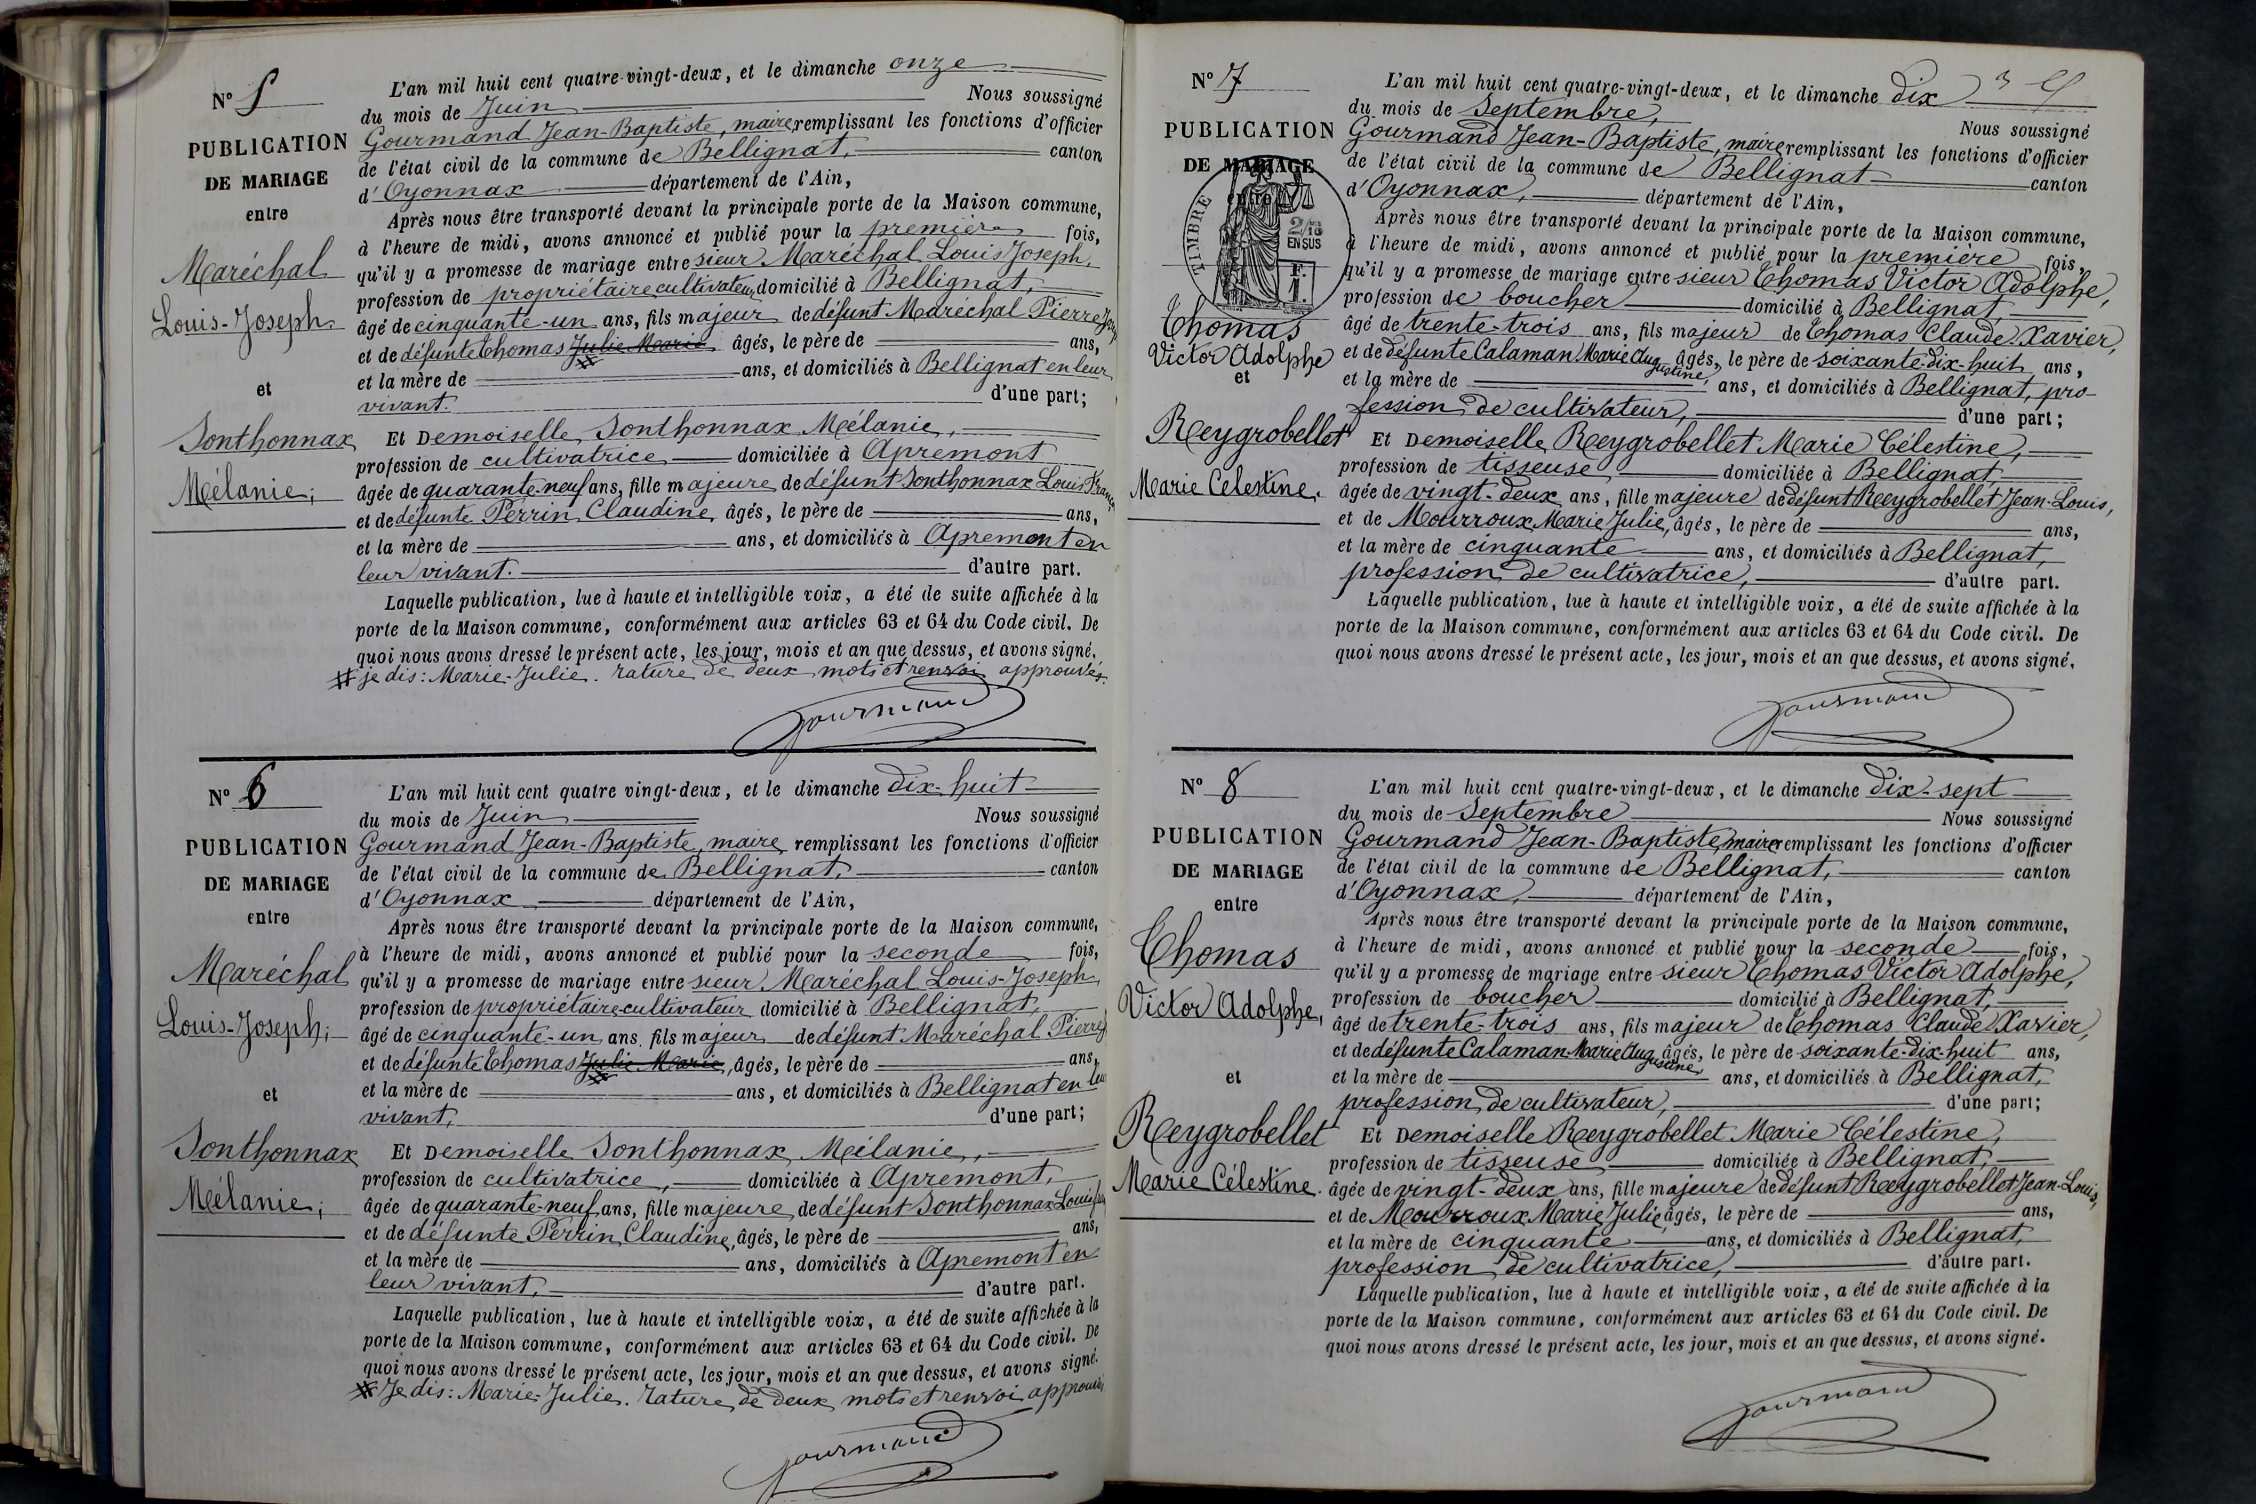 N° 5
PUBLICATION
DE MARIAGE
entre
Maréchal
Louis-Joseph
et
Sonthonnax
Mélanie;
L'an mil huit cent quatre-vingt-deux, et le dimanche onze
du mois de Juin Nous soussigné
Gourmand Jean-Baptiste, maire, remplissant les fonctions d'officier
de l'état civil de la commune de Bellignat, canton
d'Oyonnax département de l'Ain,
Après nous être transporté devant la principale porte de la Maison commune,
à l'heure de midi, avons annoncé et publié pour la première fois,
qu'il y a promesse de mariage entre sieur Maréchal Louis Joseph,
profession de propriétaire cultivateur, domicilié à Bellignat,
âgé de cinquante-un ans, fils majeur de défunt Maréchal Pierre
et de défunte Thomas Julie Marie âgés, le père de ans,
et la mère de ans, et domiciliés à Bellignat en leur
vivant. d'une part;
Et Demoiselle Sonthonnax Mélanie,
profession de cultivatrice domiciliée à Apremont
âgée de quarante-neuf ans, fille majeure de défunt Sonthonnax Louis
et de défunte Perrin Claudine âgés, le père de ans,
et la mère de ans, et domiciliés à Apremont en
leur vivant. d'autre part.
Laquelle publication, lue à haute et intelligible voix, a été de suite affichée à la
porte de la Maison commune, conformément aux articles 63 et 64 du Code civil. De
quoi nous avons dressé le présent acte, les jour, mois et an que dessus, et avons signé.
# je dis: Marie-Julie. rature de deux mots et renvoi approuvés.
Gourmand
N° 6
PUBLICATION
DE MARIAGE
entre
Maréchal
Louis-Joseph;
et
Sonthonnax
Mélanie;
L'an mil huit cent quatre vingt-deux, et le dimanche dix-huit
du mois de Juin Nous soussigné
Gourmand Jean-Baptiste, maire, remplissant les fonctions d'officier
de l'état civil de la commune de Bellignat, canton
d'Oyonnax département de l'Ain,
Après nous être transporté devant la principale porte de la Maison commune,
à l'heure de midi, avons annoncé et publié pour la seconde fois,
qu'il y a promesse de mariage entre sieur Maréchal Louis-Joseph
profession de propriétaire-cultivateur domicilié à Bellignat,
âgé de cinquante-un ans, fils majeur de défunt Maréchal Pierre
et de défunte Thomas Julie Marie, âgés, le père de ans,
et la mère de ans, et domiciliés à Bellignat en leur
vivant, d'une part;
Et Demoiselle Sonthonnax Mélanie,
profession de cultivatrice, domiciliée à Apremont,
âgée de quarante-neuf ans, fille majeure de défunt Sonthonnax Louis
et de défunte Perrin Claudine, âgés, le père de ans,
et la mère de ans, domiciliés à Apremont en
leur vivant, d'autre part.
Laquelle publication, lue à haute et intelligible voix, a été de suite affichée à la
porte de la Maison commune, conformément aux articles 63 et 64 du Code civil. De
quoi nous avons dressé le présent acte, les jour, mois et an que dessus, et avons signé.
# Je dis: Marie-Julie. rature de deux mots et renvoi approuvés
Gourmand
N° 7
PUBLICATION
DE MARIAGE
entre
TIMBRE
2/10
EN SUS
F.
1.
Thomas
Victor Adolphe
et
Reygrobellet
Marie Célestine.
L'an mil huit cent quatre-vingt-deux, et le dimanche dix
du mois de Septembre, Nous soussigné
Gourmand Jean-Baptiste, maire, remplissant les fonctions d'officier
de l'état civil de la commune de Bellignat canton
d'Oyonnax, département de l'Ain,
Après nous être transporté devant la principale porte de la Maison commune,
à l'heure de midi, avons annoncé et publié pour la première fois,
qu'il y a promesse de mariage entre sieur Thomas Victor Adolphe,
profession de boucher domicilié à Bellignat,
âgé de trente-trois ans, fils majeur de Thomas Claude Xavier,
et de défunte Calaman Marie Augustine, âgés, le père de soixante-dix-huit ans,
et la mère de ans, et domiciliés à Bellignat, pro-
fession de cultivateur, d'une part;
Et Demoiselle Reygrobellet Marie Célestine,
profession de tisseuse domiciliée à Bellignat,
âgée de vingt-deux ans, fille majeure de défunt Reygrobellet Jean-Louis,
et de Mourroux Marie Julie, âgés, le père de ans,
et la mère de cinquante ans, et domiciliés à Bellignat,
profession de cultivatrice, d'autre part.
Laquelle publication, lue à haute et intelligible voix, a été de suite affichée à la
porte de la Maison commune, conformément aux articles 63 et 64 du Code civil. De
quoi nous avons dressé le présent acte, les jour, mois et an que dessus, et avons signé.
Gourmand
N° 8
PUBLICATION
DE MARIAGE
entre
Thomas
Victor Adolphe,
et
Reygrobellet
Marie Célestine.
L'an mil huit cent quatre-vingt-deux, et le dimanche dix-sept
du mois de Septembre Nous soussigné
Gourmand Jean-Baptiste, maire, remplissant les fonctions d'officier
de l'état civil de la commune de Bellignat, canton
d'Oyonnax, département de l'Ain,
Après nous être transporté devant la principale porte de la Maison commune,
à l'heure de midi, avons annoncé et publié pour la seconde fois,
qu'il y a promesse de mariage entre sieur Thomas Victor Adolphe,
profession de boucher domicilié à Bellignat,
âgé de trente-trois ans, fils majeur de Thomas Claude Xavier,
et de défunte Calaman Marie Augustine, âgés, le père de soixante-dix-huit ans,
et la mère de ans, et domiciliés à Bellignat,
profession de cultivateur, d'une part;
Et Demoiselle Reygrobellet Marie Célestine,
profession de tisseuse domiciliée à Bellignat,
âgée de vingt-deux ans, fille majeure de défunt Reygrobellet Jean-Louis,
et de Mourroux Marie Julie, âgés, le père de ans,
et la mère de cinquante ans, et domiciliés à Bellignat,
profession de cultivatrice, d'autre part.
Laquelle publication, lue à haute et intelligible voix, a été de suite affichée à la
porte de la Maison commune, conformément aux articles 63 et 64 du Code civil. De
quoi nous avons dressé le présent acte, les jour, mois et an que dessus, et avons signé.
Gourmand